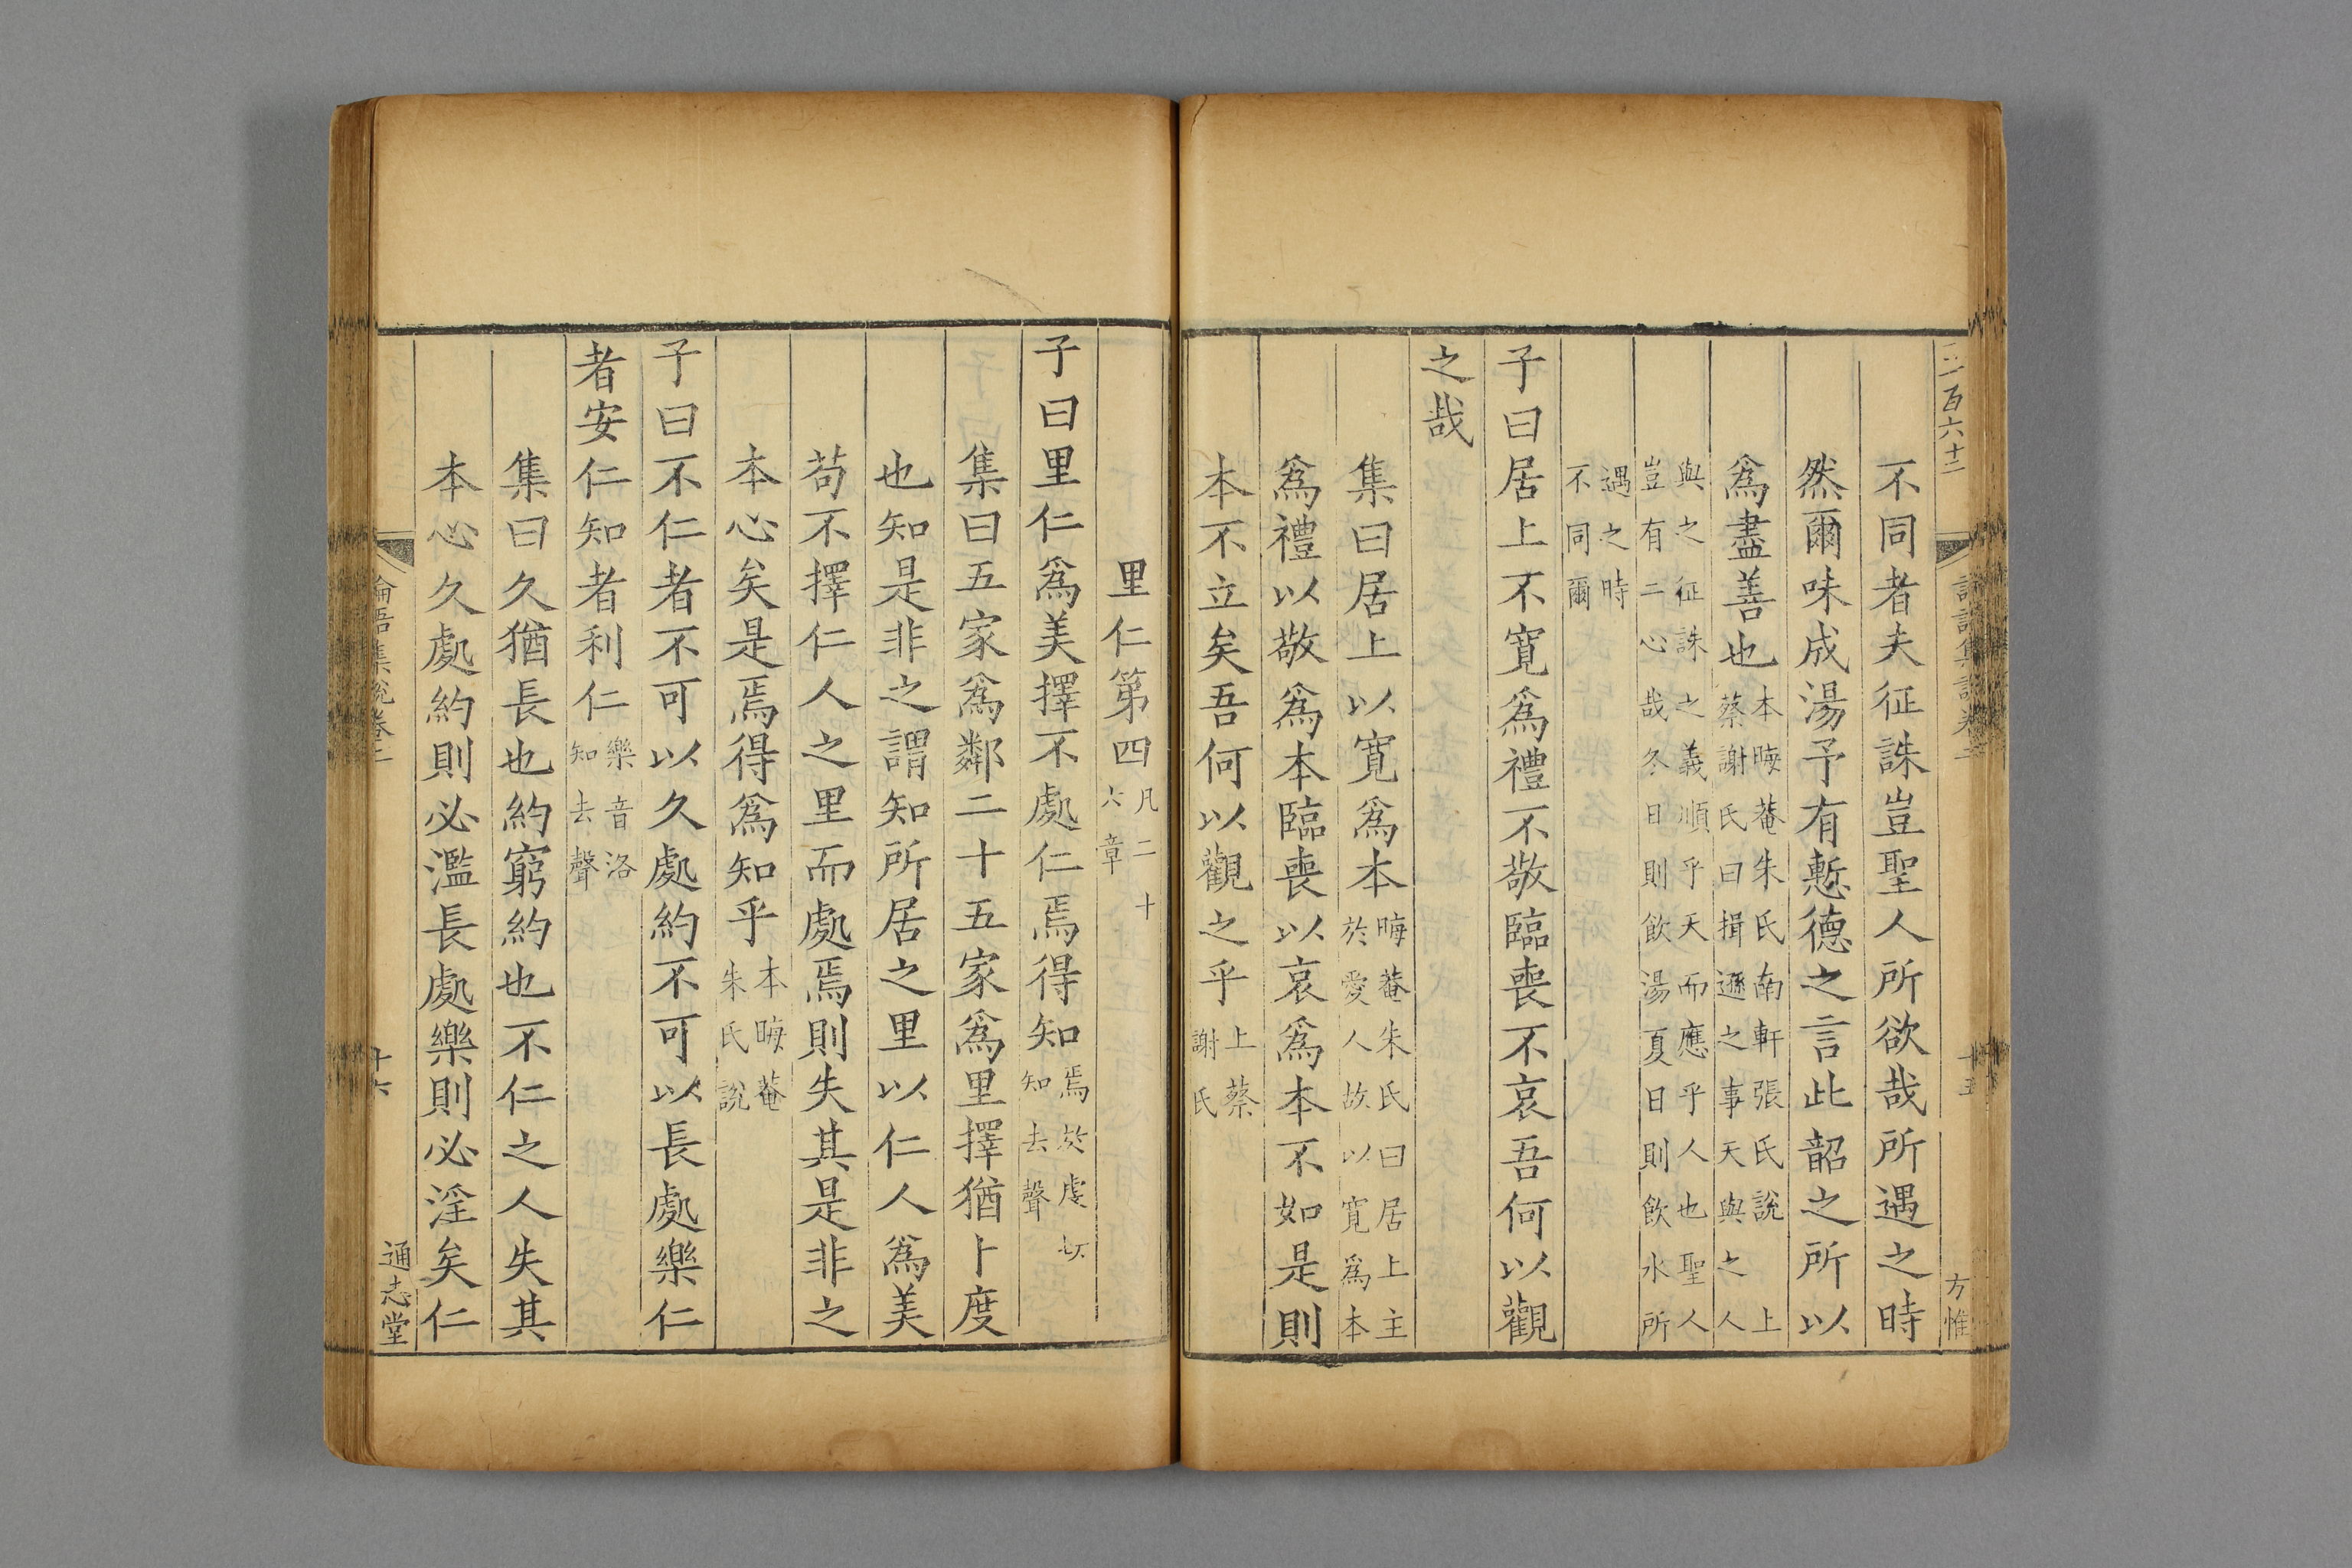 不同者夫征誅豈聖人所欲哉所遇之時
然爾味成湯予有慙德之言此韶之所以
爲盡善也本晦菴朱氏南軒張氏說 上
蔡謝氏曰揖遜之事天與之人
與之征誅之義順乎天而應乎人也聖人
豈有二心哉冬日則飲湯夏日則飲水所
遇之時
不同爾
子曰居上不寬爲禮不敬臨喪不哀吾何以觀
之哉
集曰居上以寬爲本晦菴朱氏曰居上主
於愛人故以寬爲本
爲禮以敬爲本臨喪以哀爲本不如是則
本不立矣吾何以觀之乎上蔡
謝氏
方惟
里仁第四凡二十
六章
子曰里仁爲美擇不處仁焉得知焉於虔切
知去聲
集曰五家爲鄰二十五家爲里擇猶卜度
也知是非之謂知所居之里以仁人爲美
苟不擇仁人之里而處焉則失其是非之
本心矣是焉得爲知乎本晦菴
朱氏說
子曰不仁者不可以久處約不可以長處樂仁
者安仁知者利仁樂音洛
知去聲
集曰久猶長也約窮約也不仁之人失其
本心久處約則必濫長處樂則必淫矣仁
論語集說卷二
十六
通志堂